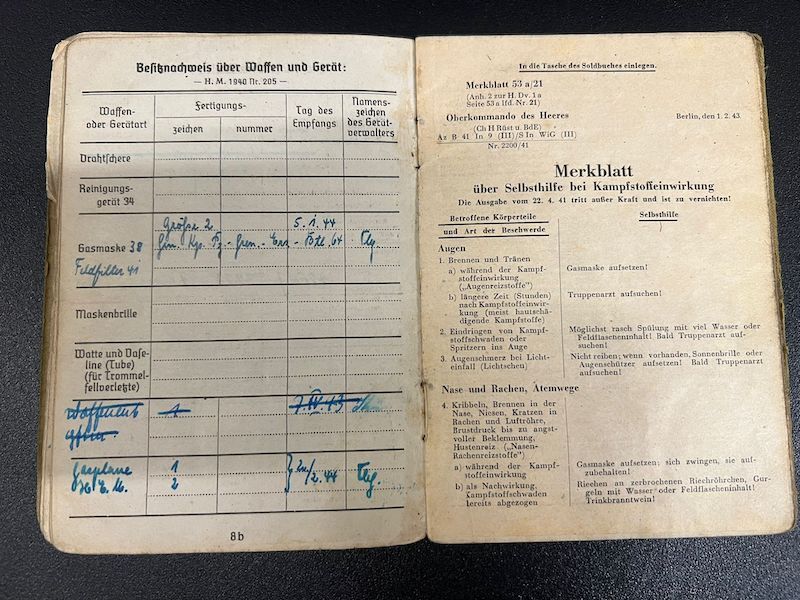 Besitznachweis über Waffen und Gerät:
— H. M. 1940 Nr. 205 —
Waffen-
oder Gerätart
Fertigungs-
zeichen
nummer
Tag des
Empfangs
Namens-
zeichen
des Gerät-
verwalters
Drahtschere
Reinigungs-
gerät 34
Größe 2
5. 1. 44
Gasmaske 38
Feldfilter 41
Maskenbrille
Watte und Vase-
line (Tube)
(für Trommel-
fellverletzte)
1
7. IV. 43
Gasplane
1
2
2. 44
8b
In die Tasche des Soldbuches einlegen.
Merkblatt 53 a/21
(Anh. 2 zur H. Dv. 1 a
Seite 53 a lfd. Nr. 21)
Oberkommando des Heeres
Berlin, den 1. 2. 43.
(Ch H Rüst u. BdE)
Az B 41 In 9 (III)/S In WiG (III)
Nr. 2200/41
Merkblatt
über Selbsthilfe bei Kampfstoffeinwirkung
Die Ausgabe vom 22. 4. 41 tritt außer Kraft und ist zu vernichten!
Betroffene Körperteile
und Art der Beschwerde
Selbsthilfe
Augen
1. Brennen und Tränen
a) während der Kampf-
stoffeinwirkung
(„Augenreizstoffe")
Gasmaske aufsetzen!
b) längere Zeit (Stunden)
nach Kampfstoffeinwir-
kung (meist hautschä-
digende Kampfstoffe)
Truppenarzt aufsuchen!
2. Eindringen von Kampf-
stoffschwaden oder
Spritzern ins Auge
Möglichst rasch Spülung mit viel Wasser oder
Feldflascheninhalt! Bald Truppenarzt auf-
suchen!
3. Augenschmerz bei Licht-
einfall (Lichtscheu)
Nicht reiben; wenn vorhanden, Sonnenbrille oder
Augenschützer aufsetzen! Bald Truppenarzt
aufsuchen!
Nase und Rachen, Atemwege
4. Kribbeln, Brennen in der
Nase, Niesen, Kratzen in
Rachen und Luftröhre,
Brustdruck bis zu angst-
voller Beklemmung,
Hustenreiz („Nasen-
Rachenreizstoffe")
a) während der Kampf-
stoffeinwirkung
Gasmaske aufsetzen; sich zwingen, sie auf-
zubehalten!
b) als Nachwirkung,
Kampfstoffschwaden
bereits abgezogen
Riechen an zerbrochenen Riechröhrchen, Gur-
geln mit Wasser oder Feldflascheninhalt!
Trinkbranntwein!